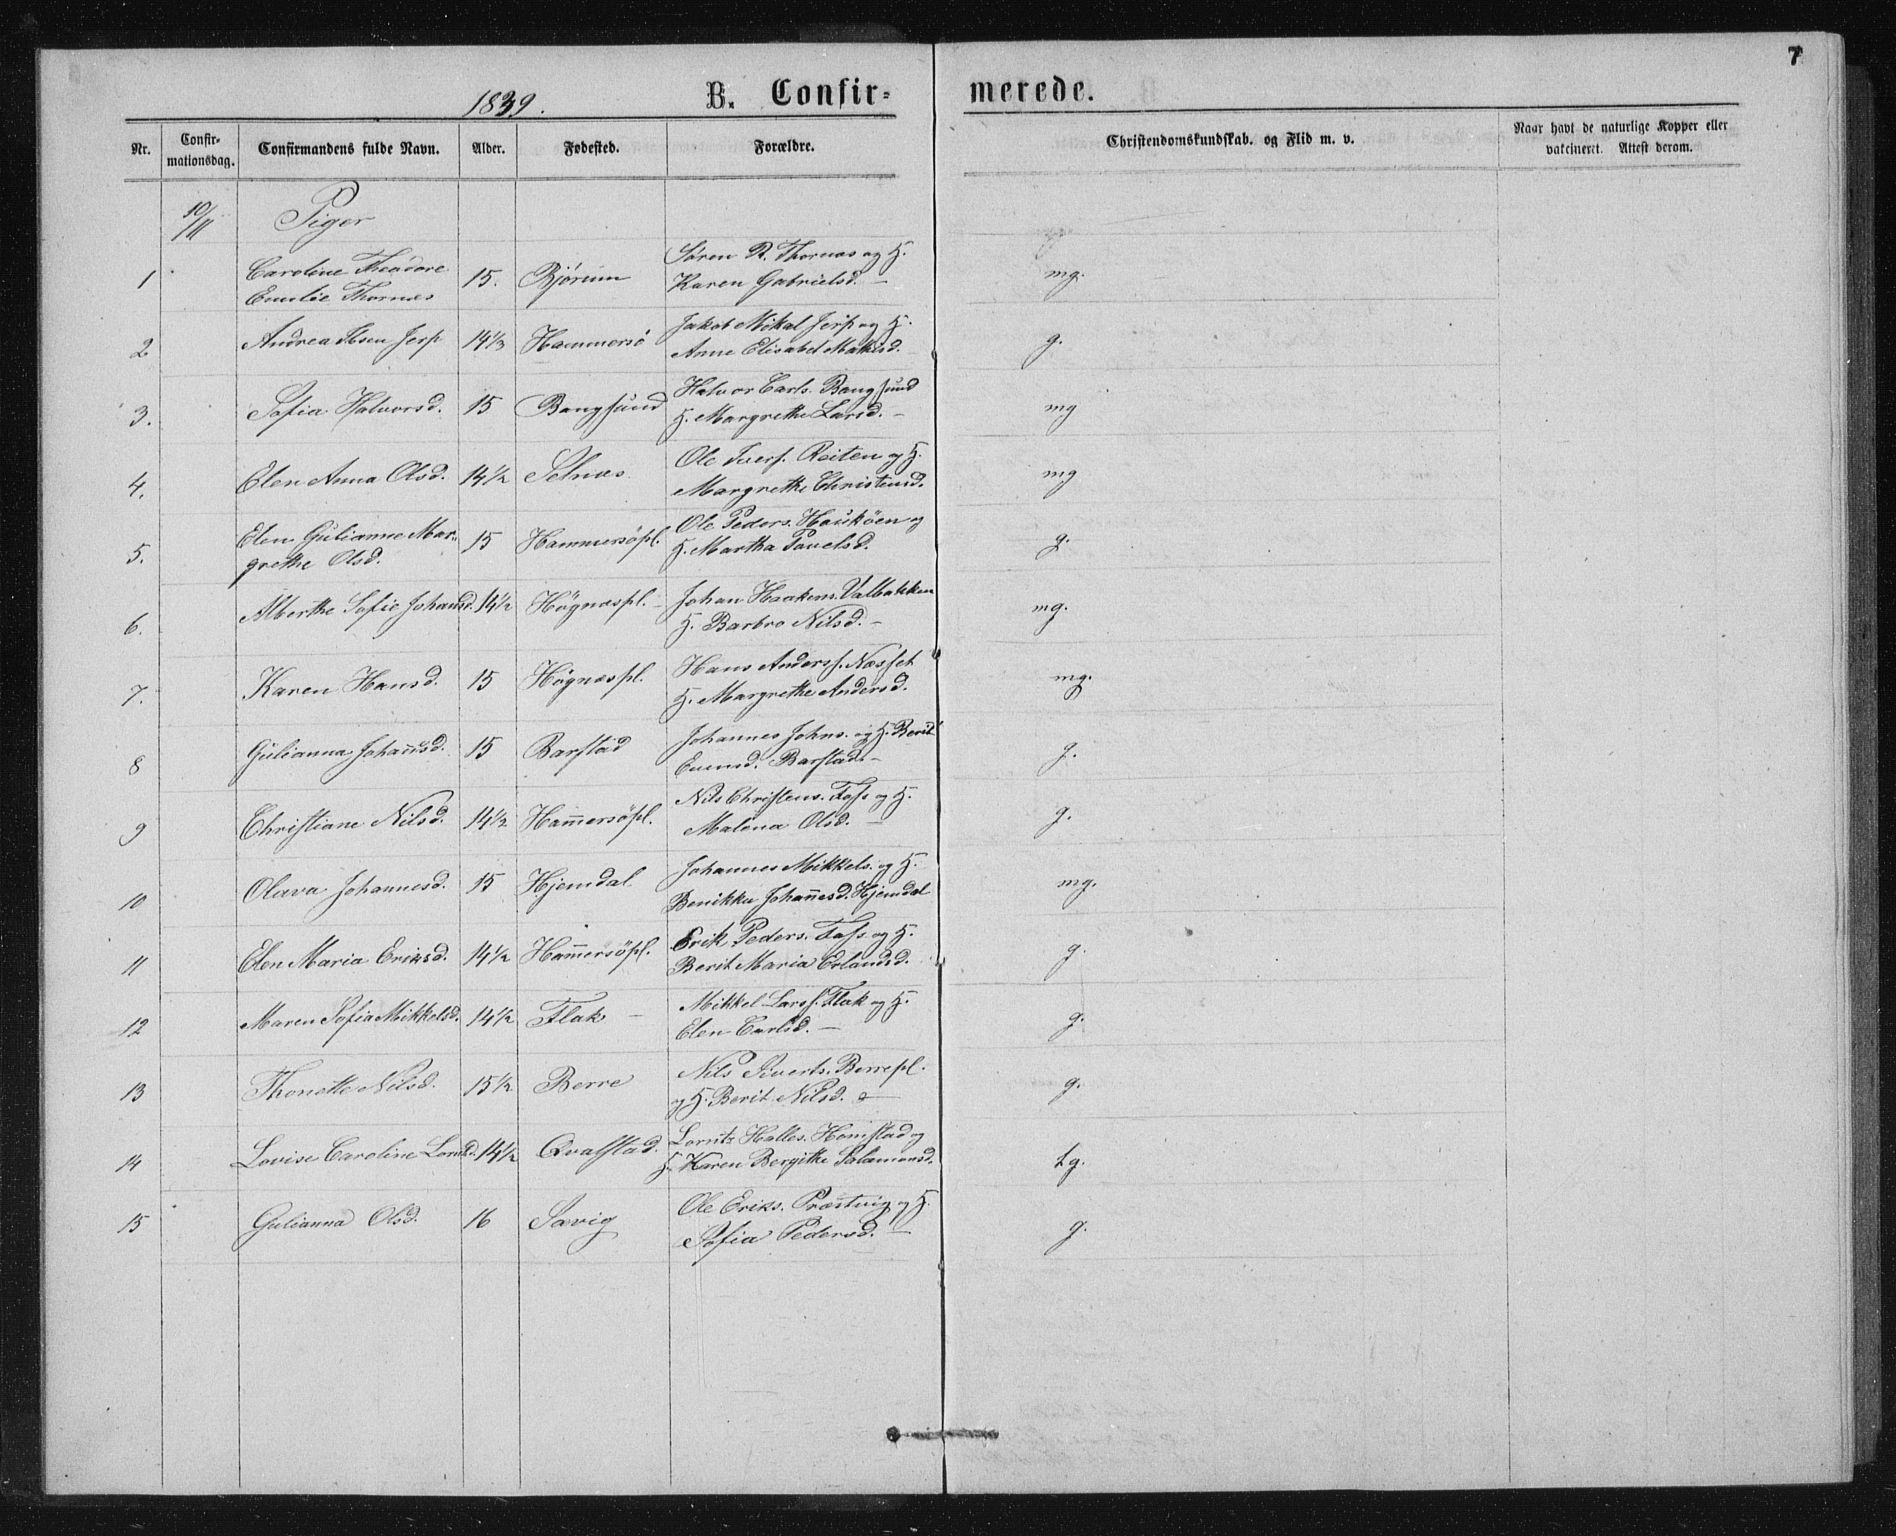 7
1839. B. Confir= merede.
Nr. Confir-mationsdag. Confirmandens fulde Navn. Alder. Fødested. Forældre. Christendomskundskab. og Flid m. v. Naar havt de naturlige Kopper eller vakcineret. Attest derom.
10/11 Piger
1 Caroline Theodore 15. Bjørum Søren R. Thornæs og H. mg.
Emilie Thornæs Karen Gabrielsd. –
2 Andrea Ibsen Jerp 14½ Hammersö Jakob Mikal Jerp og H. g.
Anne Elisabet
3. Sofia Halvorsd. 15 Bangsund Halvor Carls. Bangsund mg
H. Margrethe Larsd. –
4. Elen Anna Olsd. 14½ Selnæs Ole Ivers. Reiten og H. mg
Margrethe Christensd.
5. Elen Gulianne Mar- 15 Hammersöpl. Ole Peders. Hauköen og g.
grethe Olsd. H. Martha Pavelsd.
6. Alberthe Sofie Johansd. 14½ Högnæspl. Johan Haakens. Valbakken mg.
H. Barbro Nilsd. –
7. Karen Hansd. 15 Högnæspl. Hans Anders. Næsset mg.
H. Margrethe Andersd.
8 Gulianna Johansd. 15 Barstad Johannes Johns. og H. Berit g.
Evensd. Barstad –
9 Christiane Nilsd. 14½ Hammersöpl. Nils Christens. Fass og H. g.
Malena Olsd. –
10 Olava Johannesd. 15 Hjemdal Johannes Mikkels. og H. mg.
Benikka Johannesd. Hjemdal
11 Elen Maria Eriksd. 14½ Hammersöpl. Erik Peders. Fass og H. g.
Berit Maria Erlandsd.
12 Maren Sofia Mikkelsd. 14½ Flak – Mikkel Larss. Flak og H. g.
Elen Carlsd. –
13 Thonette Nilsd. 15½ Berre Nils Siverts. Berrepl. g.
og H. Berit Nilsd. –
14 Lovise Caroline 14½ Qvalstad. Lorntz Halles. Homstad og tg.
H. Karen Bergitte Salamonsd.
15 Gulianna Olsd. 16 Savig Ole Eriks. Præstvig og H. g.
Sofia Pedersd. –